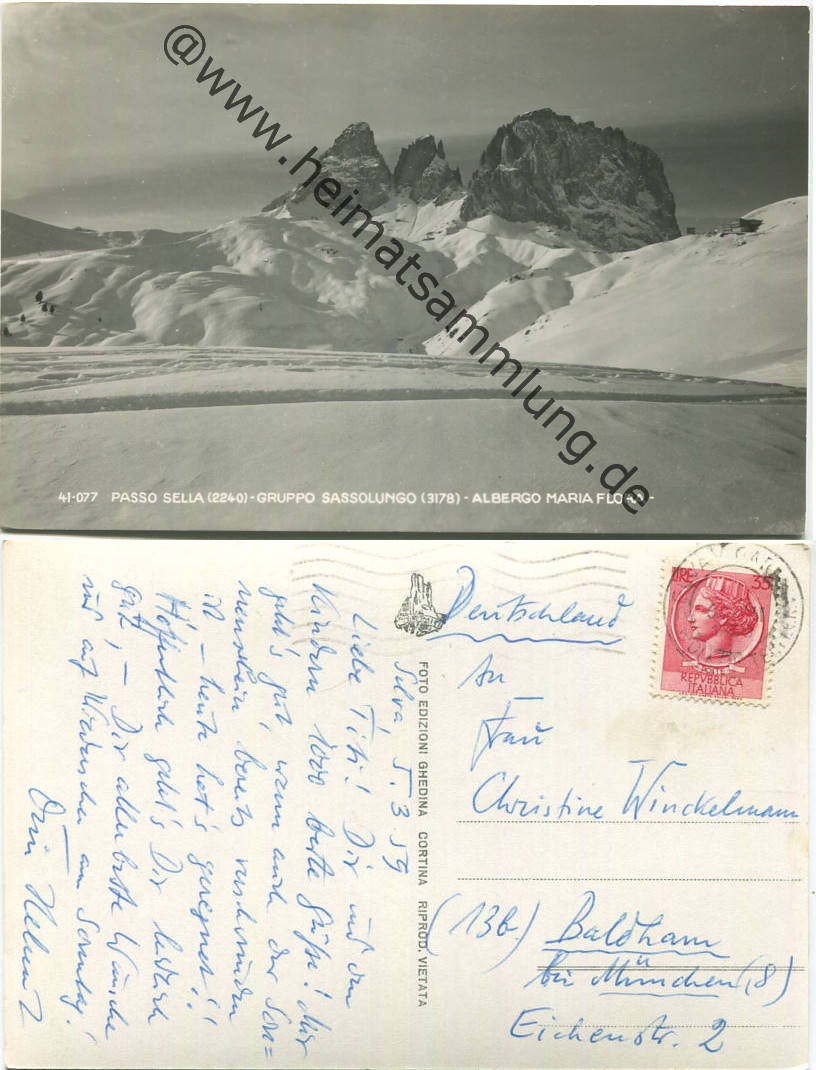 @www.heimatsammlung.de
41-077 PASSO SELLA (2240) - GRUPPO SASSOLUNGO (3178) - ALBERGO MARIA FLORA -
Silva, 5.3.59
Liebe Titi! Dir und den
Kindern 1000 beste Grüße! Mir
geht's gut, wenn auch der Son=
nenschein bereits verschwunden
ist – heute hat's geregnet!!
Hoffentlich geht's Dir
gut, – Dir allerbeste Wünsche
und auf Wiedersehen am Sonntag!
Dein Helmut
FOTO EDIZIONI GHEDINA CORTINA RIPROD. VIETATA
LIRE 35
POSTE
REPVBBLICA
ITALIANA
Deutschland
An
Frau
Christine Winckelmann
(13b) Baldham
bei München (8)
Eichenstr. 2